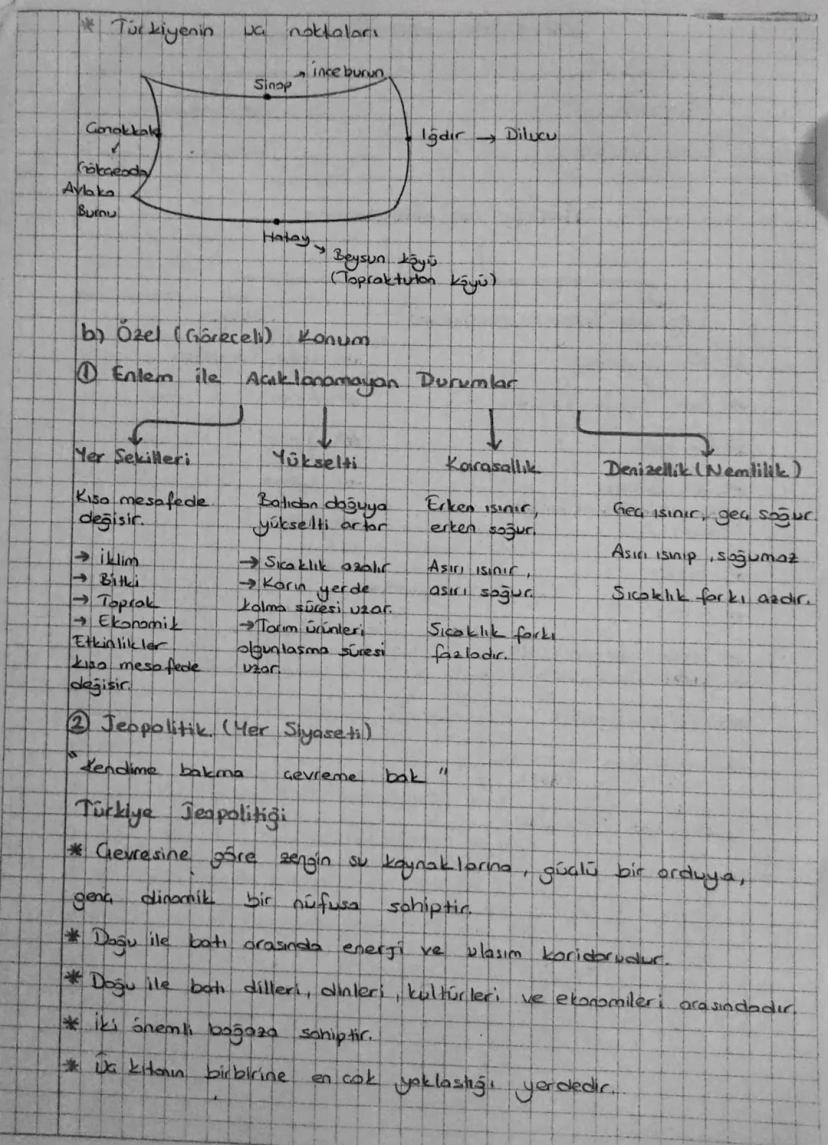 * Türkiyenin uç noktaları
Sinop → inceburun
Çanakkale
↙
Gökçeada
Avlaka
Burnu
Iğdır → Dilucu
Hatay → Beysun köyü
(Topraktutan köyü)
b) Özel (Göreceli) Konum
① Enlem ile Açıklanamayan Durumlar
Yer Şekilleri
Kısa mesafede
değişir.
→ İklim
→ Bitki
→ Toprak
→ Ekonomik
Etkinlikler
kısa mesafede
değişir.
Yükselti
Batıdan doğuya
yükselti artar
→ Sıcaklık azalır
→ Karın yerde
kalma süresi uzar.
→ Tarım ürünleri
olgunlaşma süresi
uzar.
Karasallık
Erken ısınır,
erken soğur.
Aşırı ısınır,
aşırı soğur.
Sıcaklık farkı
fazladır.
Denizellik (Nemlilik)
Geç ısınır, geç soğur.
Aşırı ısınıp, soğumaz
Sıcaklık farkı azdır.
② Jeopolitik (Yer Siyaseti)
"Kendime bakma çevreme bak"
Türkiye Jeopolitiği
* Çevresine göre zengin su kaynaklarına, güçlü bir orduya,
genç dinamik bir nüfusa sahiptir.
* Doğu ile batı arasında enerji ve ulaşım koridorudur.
* Doğu ile batı dilleri, dinleri, kültürleri ve ekonomileri arasındadır.
* İki önemli boğaza sahiptir.
* Üç kıtanın birbirine en çok yaklaştığı yerdedir.